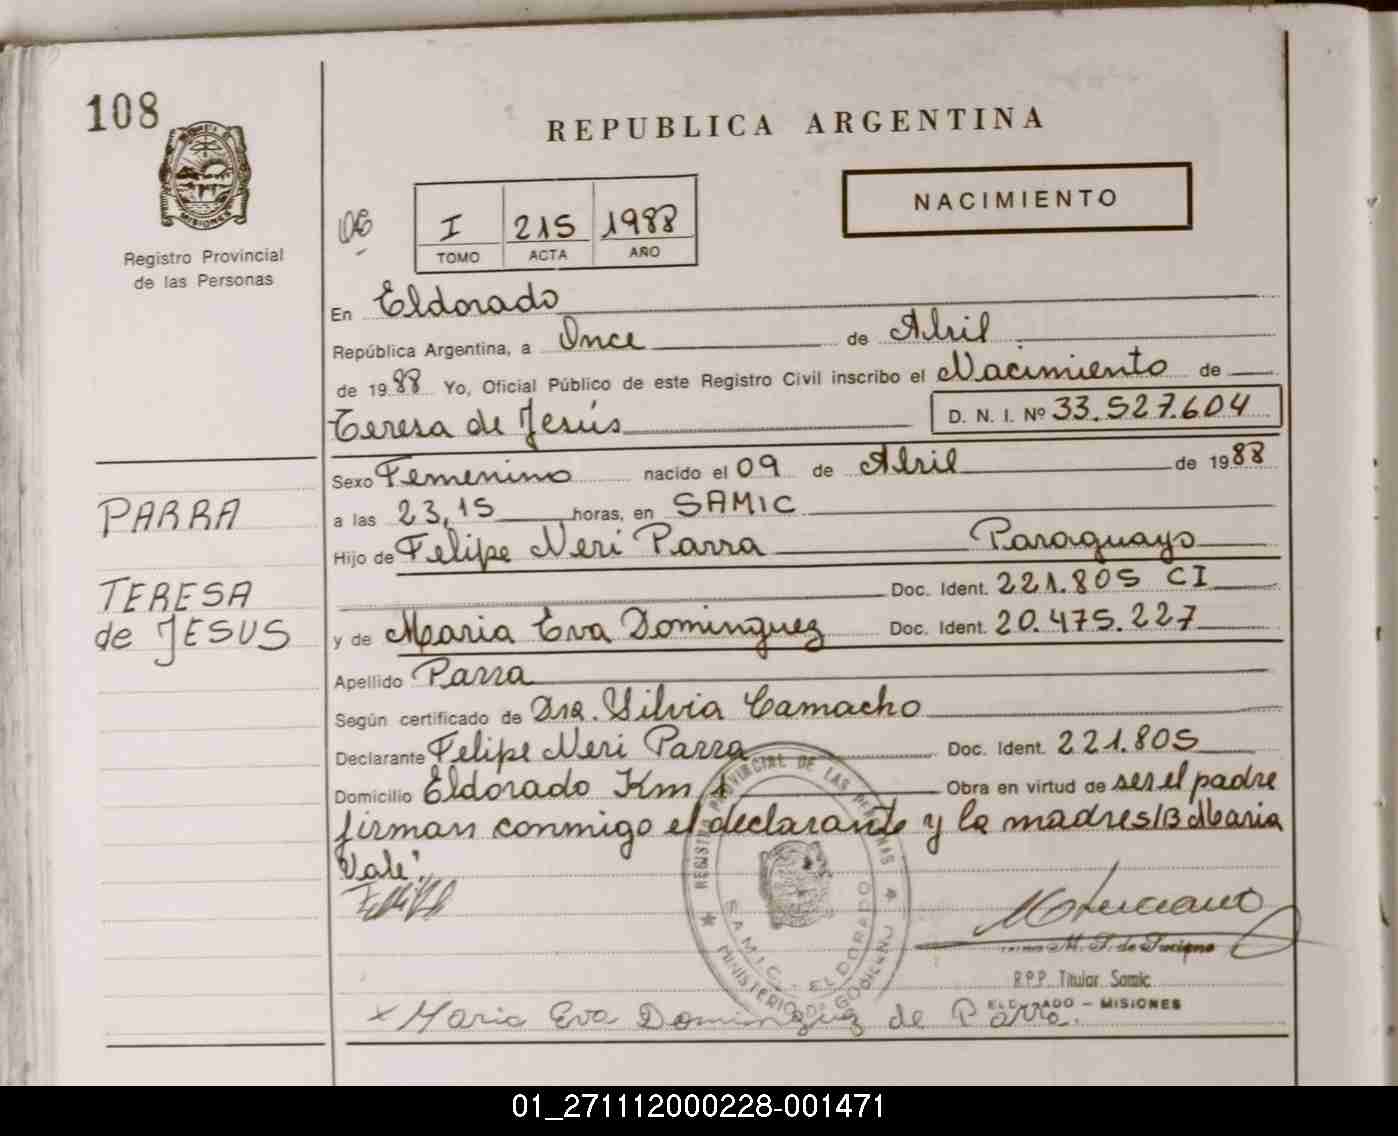 108
REPUBLICA ARGENTINA
NACIMIENTO
MISIONES
Registro Provincial
de las Personas
I 215 1988
TOMO ACTA AÑO
En Eldorado
República Argentina, a Once de Abril
de 1988 Yo, Oficial Público de este Registro Civil inscribo el Nacimiento de
Teresa de Jesús D. N. I. Nº 33.527.604
Sexo Femenino nacido el 09 de Abril de 1988
PARRA
a las 23,15 horas, en SAMIC
Hijo de Felipe Neri Parra Paraguayo
TERESA
de JESUS
Doc. Ident. 221.805 CI
y de Maria Eva Dominguez Doc. Ident. 20.475.227
Apellido Parra
Según certificado de Dra. Silvia Camacho
Declarante Felipe Neri Parra Doc. Ident. 221.805
Domicilio Eldorado Km 1 Obra en virtud de ser el padre
firman conmigo el declarante y la madre s/B Maria
Vale
REGISTRO PROVINCIAL DE LAS PERSONAS
S.A.M.I.C. - ELDORADO
MINISTERIO DE GOBIERNO
R.P.P. Titular Samic
ELDORADO - MISIONES
x Maria Eva Dominguez de Parra.
01_271112000228-001471